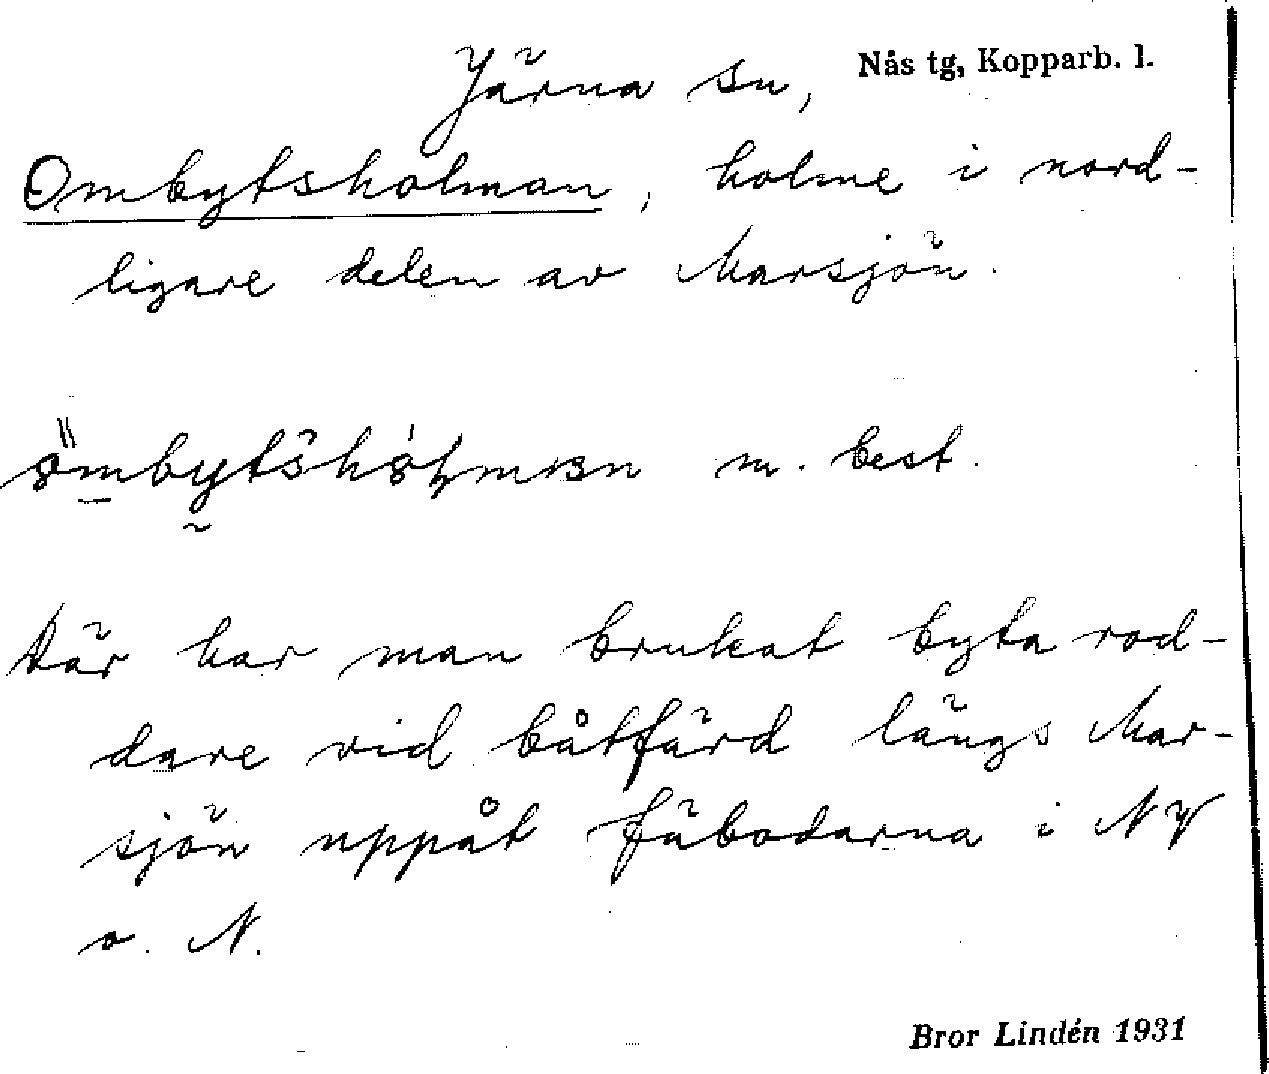 Järna sn, Nås tg, Kopparb. l.
Ombytsholman, holme i nord-
ligare delen av Marsjön.
m. best.
Där har man brukat byta rod-
dare vid båtfärd längs Mar-
sjön uppåt fäbodarna i NV
o. N.
Bror Lindén 1931